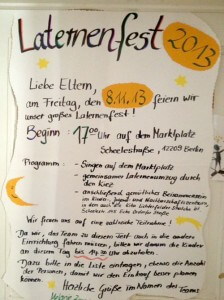 Laternenfest 2013
Liebe Eltern,
am Freitag, den 8.11.13 feiern wir
unser großes Laternenfest!
Beginn: 17°° Uhr auf dem Marktplatz
Scheelestraße, 12209 Berlin
Programm: - Singen auf dem Marktplatz
- gemeinsamer Laternenumzug durch
den Kiez
- anschließend gemütliches Beisammensein
im Kinder-, Jugend- und Nachbarschaftszentrum
Wir freuen uns auf eine zahlreiche Teilnahme!
- Da wir, das Team zu diesem Fest auch in die andere
Einrichtung fahren müssen, bitten wir darum die Kinder
an diesem Tag bis 14.30 Uhr abzuholen.
- Dazu bitte in die Liste eintragen, ebenso die Anzahl
der Personen, damit wir den Einkauf besser planen
können.
Herzliche Grüße im Namen des Teams